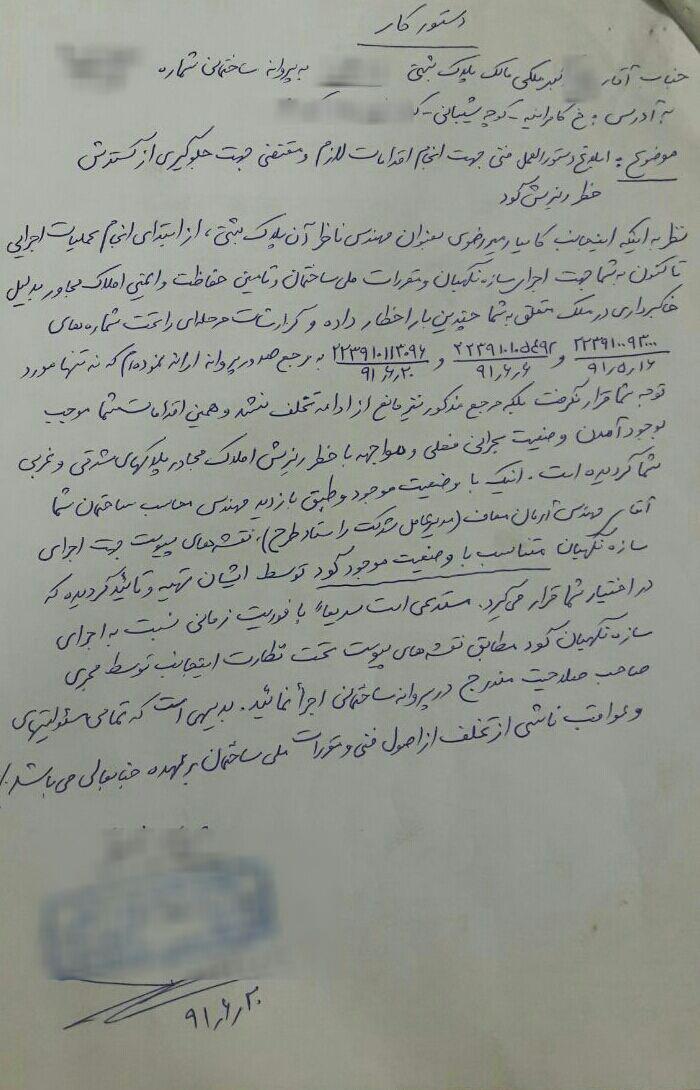 دستور کار
جناب آقای مالک پلاک ثبتی به پروانه ساختمانی شماره
به آدرس : خ کامرانیه - کوچه شیبانی -
موضوع : ابلاغ دستورالعمل فنی جهت انجام اقدامات لازم و مقتضی جهت جلوگیری از گسترش
خطر ریزش گود
نظر به اینکه اینجانب کامیار میررضوی بعنوان مهندس ناظر آن پلاک ثبتی ، از ابتدای انجام عملیات اجرایی
تا کنون به شما جهت اجرای سازه نگهبان و مقررات ملی ساختمان و تامین حفاظت و ایمنی املاک مجاور بدلیل
خاکبرداری در ملک متعلق به شما چندین بار اخطار داده و گزارشات مرحله‌ای را تحت شماره‌های
۲۲۳۹۱۰۰۹۳۰۰۰ و ۲۲۳۹۱۰۱۰۵۴۹۲ و ۲۲۳۹۱۰۱۱۳۰۹۶ به مرجع صدور پروانه ارائه نموده‌ام که نه تنها مورد
۹۱,۵,۱۶ ۹۱,۶,۶ ۹۱,۶,۲۰
توجه شما قرار نگرفت بلکه مرجع مذکور نیز مانع از ادامه تخلف نشد و همین اقدامات شما موجب
بوجود آمدن وضعیت بحرانی فعلی و مواجهه با خطر ریزش املاک مجاور پلاکهای شرقی و غربی
شما گردیده است . اینک با وضعیت موجود و طبق بازدید مهندس محاسب ساختمان شما
آقای مهندس آرمان معاف (مدیرعامل شرکت راستاد طرح) ، نقشه‌های پیوست جهت اجرای
سازه نگهبان متناسب با وضعیت موجود گود توسط ایشان تهیه و تائید گردیده که
در اختیار شما قرار می‌گیرد . مستدعی است سریعاً با فوریت زمانی نسبت به اجرای
سازه نگهبان گود مطابق نقشه‌های پیوست تحت نظارت اینجانب توسط مجری
صاحب صلاحیت مندرج در پروانه ساختمانی اجرا نمائید . بدیهی است که تمامی مسئولیتهای
و عواقب ناشی از تخلف از اصول فنی و مقررات ملی ساختمان بر عهده جنابعالی می باشد ./
۹۱,۶,۲۰